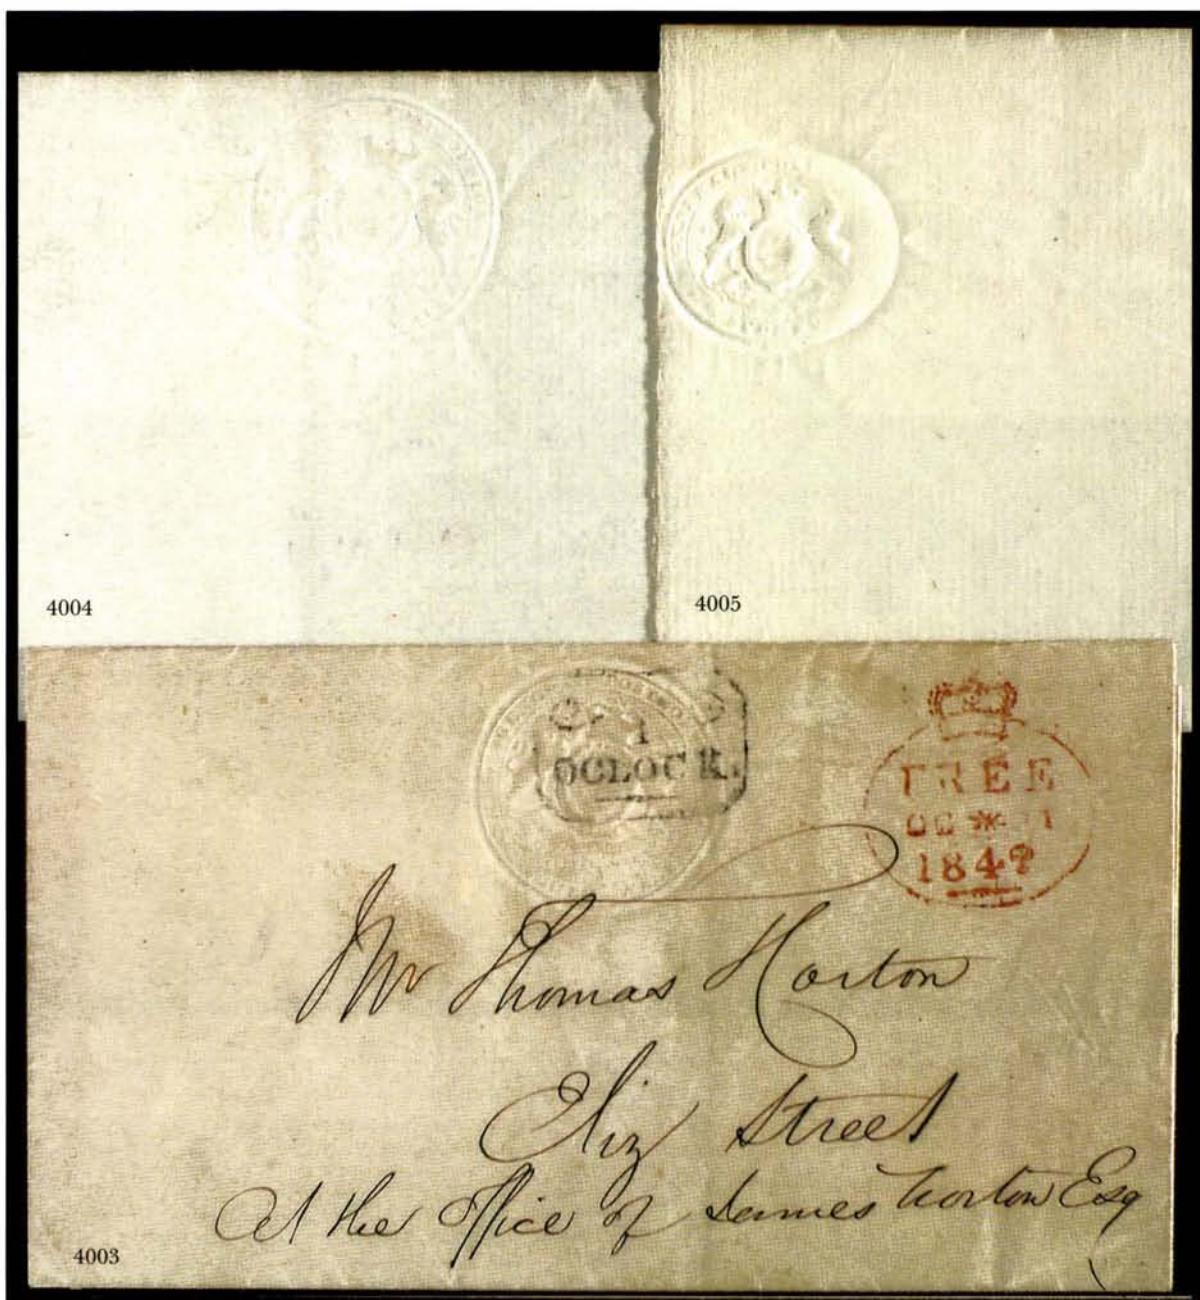 4004
4005
1
OCLOCK.
FREE
OC * 1
184
Mr Thomas Horton
Eliz Street
At the Office of James Norton Esq
4003